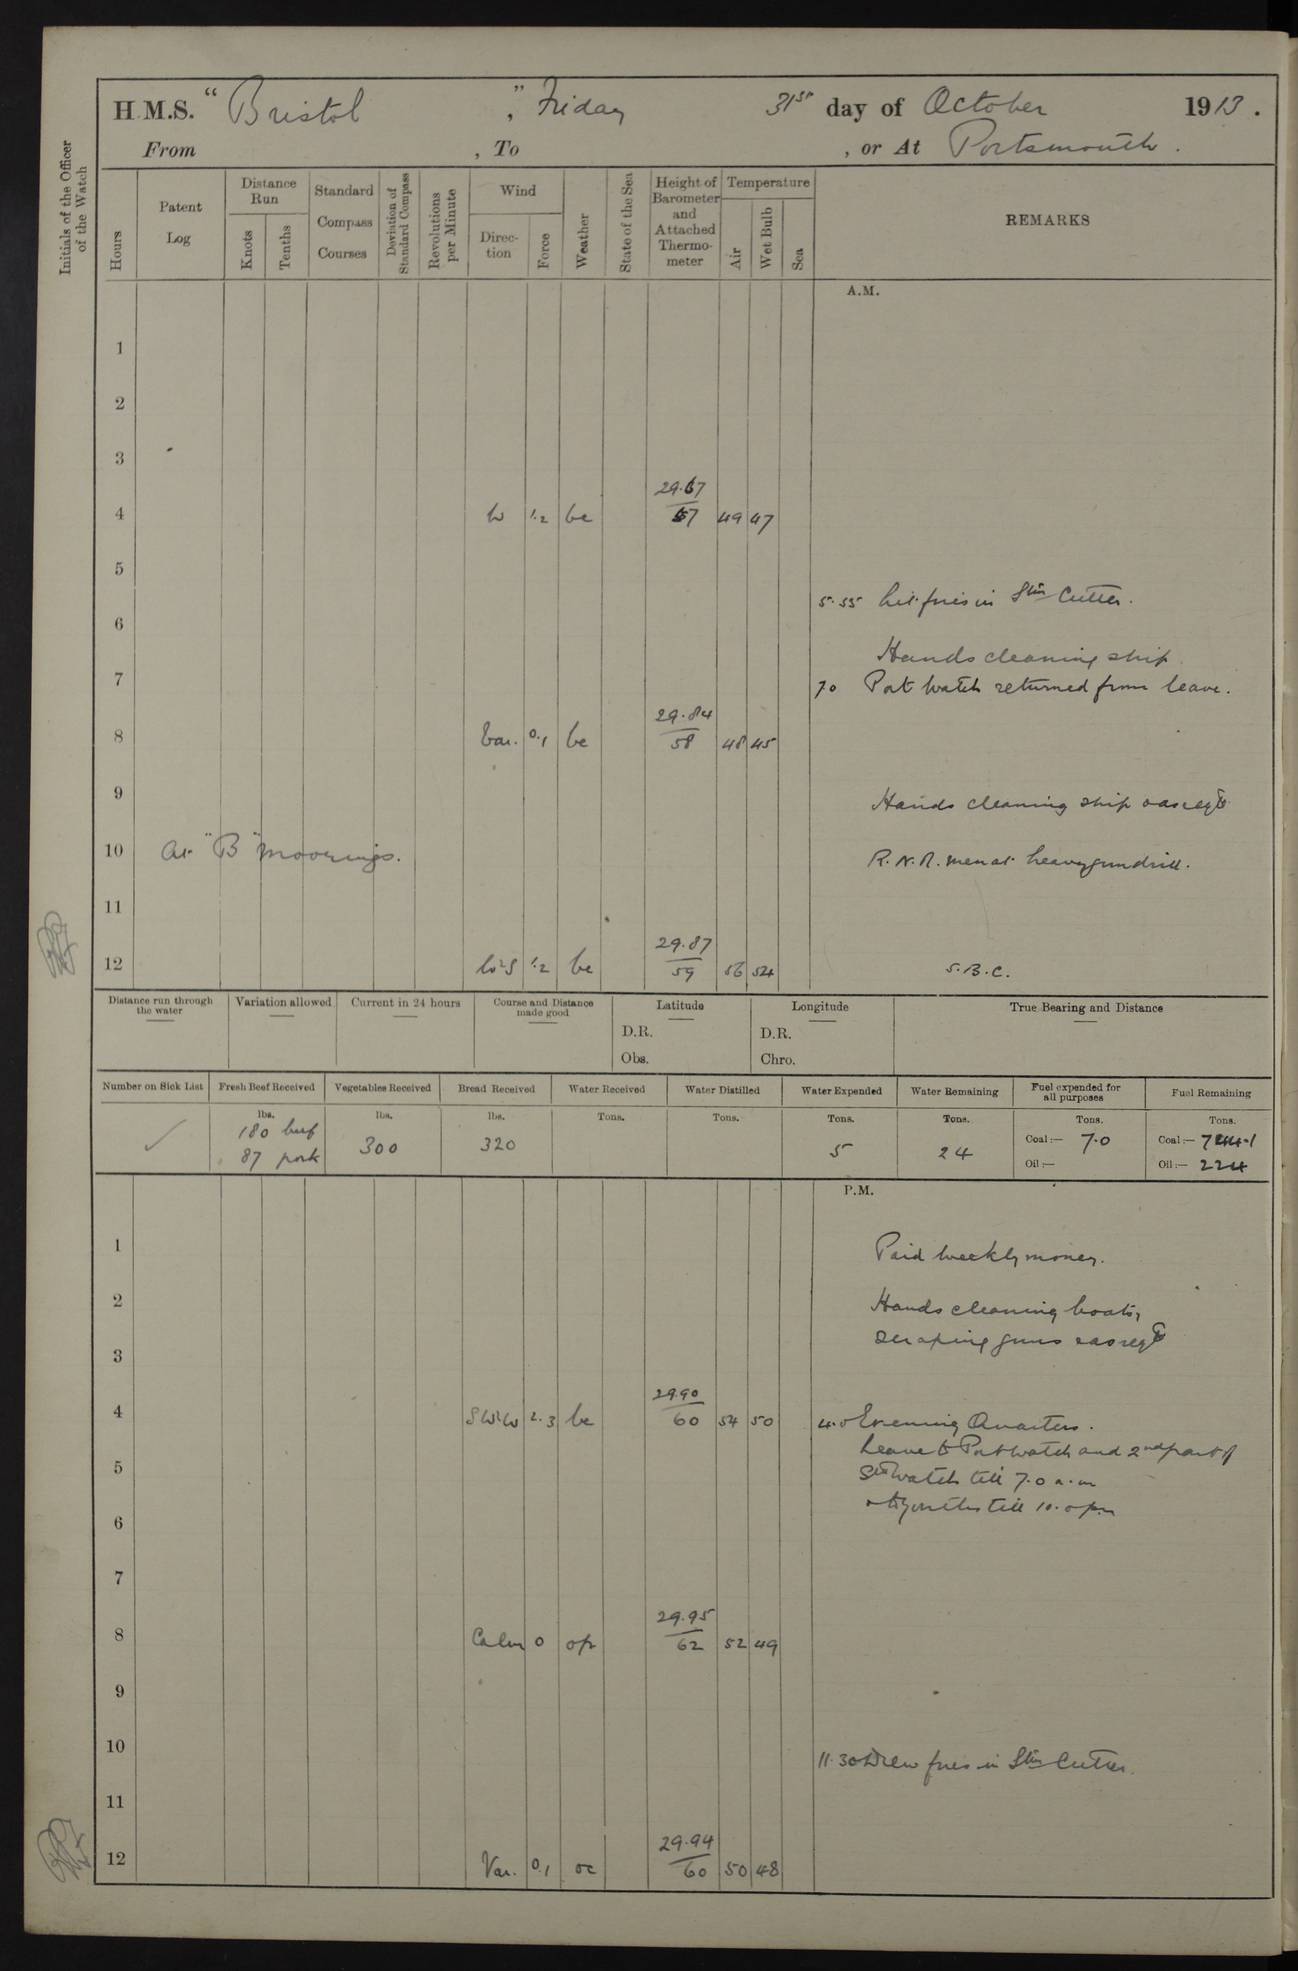 H.M.S. "Bristol", Friday 31st day of October 1913.
From , To , or At Portsmouth.
Initials of the Officer of the Watch
Hours
Patent Log
Distance Run
Knots
Tenths
Standard Compass Courses
Deviation of Standard Compass
Revolutions per Minute
Wind
Direction
Force
Weather
State of the Sea
Height of Barometer and Attached Thermometer
Temperature
Air
Wet Bulb
Sea
REMARKS
A.M.
1
2
3
29.67
4 W 1.2 bc 57 49 47
5
5.55 Lit fires in Stm Cutter.
6
Hands cleaning ship
7
7.0 Port Watch returned from leave.
29.84
8 Var. 0.1 bc 58 48 45
9 Hands cleaning ship & as reqd
10 At "B" moorings. R.N.R. men at heavy gun drill.
11
29.87
12 W'S 1.2 bc 59 56 54 S.B.C.
Distance run through the water
Variation allowed
Current in 24 hours
Course and Distance made good
Latitude
D.R.
Obs.
Longitude
D.R.
Chro.
True Bearing and Distance
Number on Sick List
Fresh Beef Received
Vegetables Received
Bread Received
Water Received
Water Distilled
Water Expended
Water Remaining
Fuel expended for all purposes
Fuel Remaining
lbs. lbs. lbs. Tons. Tons. Tons. Tons. Tons. Tons.
180 beef 300 320 5 24 Coal:— 7.0 Coal:— 744.1
87 pork Oil:— Oil:— 224
P.M.
1 Paid weekly money.
2 Hands cleaning boats,
scraping guns & as reqd
3
29.90
4 SW'W 2.3 bc 60 54 50 4.0 Evening Quarters.
Leave to Port Watch and 2nd part of
5 Std Watch till 7.0 a.m
& to youths till 10.0 pm
6
7
29.95
8 Calm 0 op 62 52 49
9
10
11.30 Drew fires in Stm Cutter.
11
29.94
12 Var. 0.1 oc 60 50 48